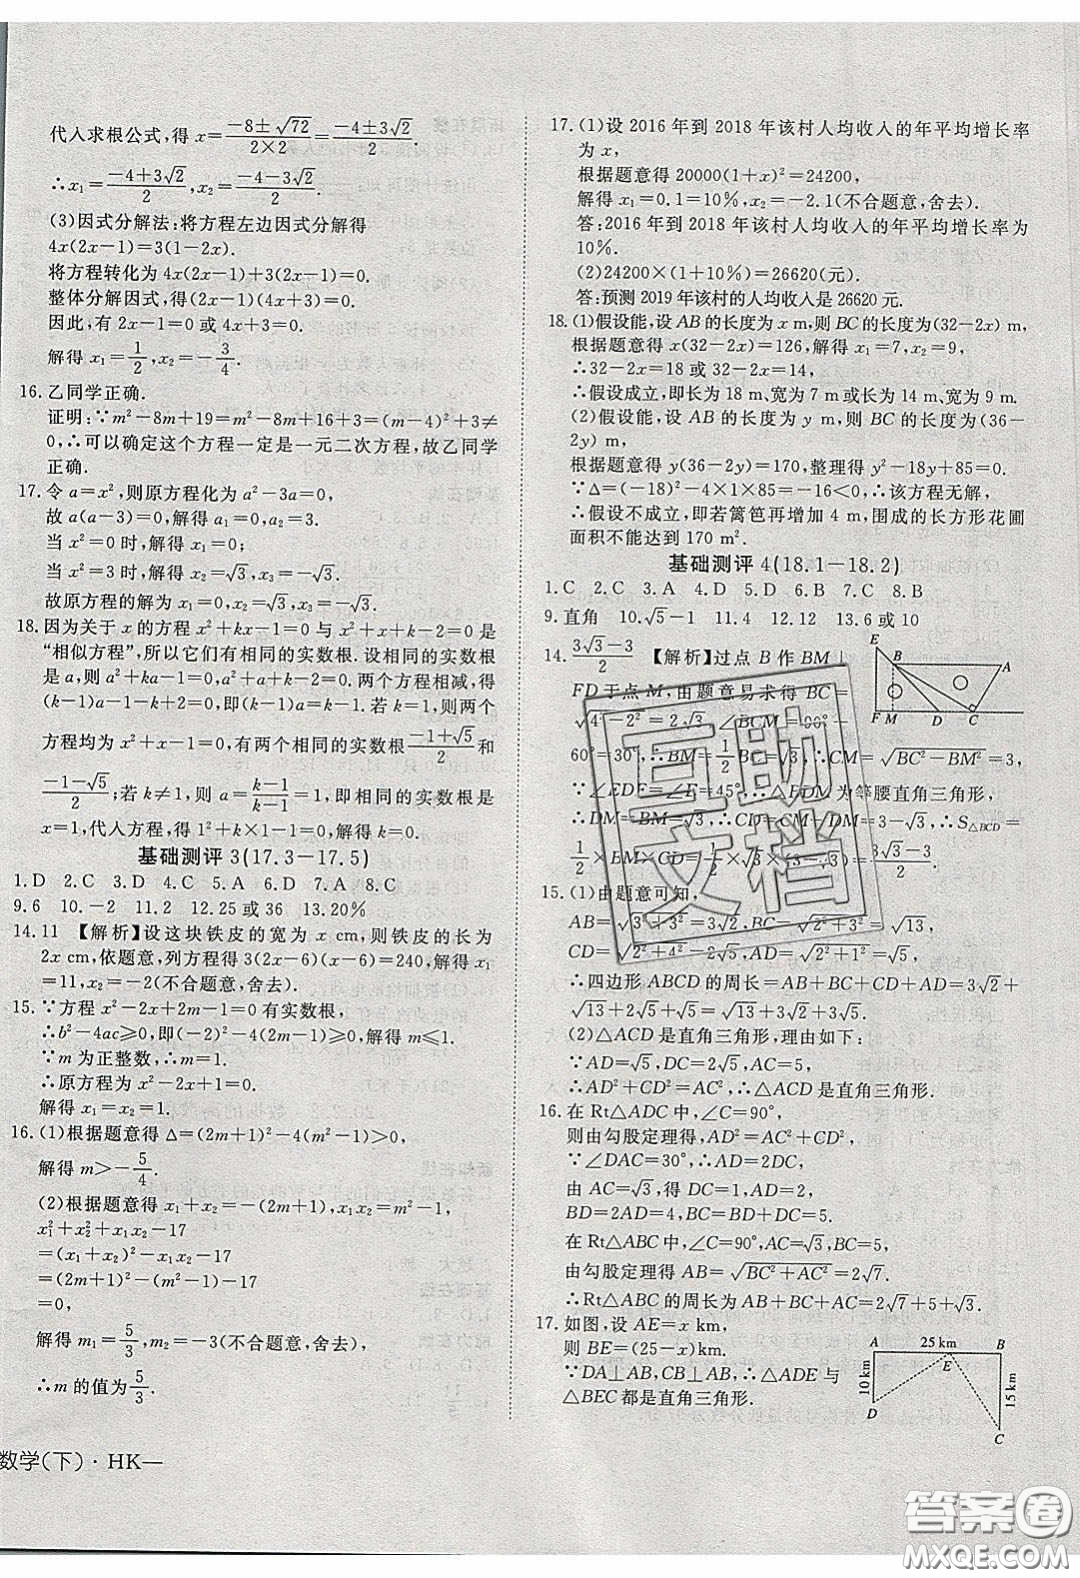 代入求根公式，得 x=(-8±√72)/(2×2)=(-4±3√2)/2.
∴x₁=(-4+3√2)/2, x₂=(-4-3√2)/2.
(3)因式分解法：将方程左边因式分解得
4x(2x-1)=3(1-2x).
将方程转化为 4x(2x-1)+3(2x-1)=0.
整体分解因式，得(2x-1)(4x+3)=0.
因此，有 2x-1=0 或 4x+3=0.
解得 x₁=1/2, x₂=-3/4.
16.乙同学正确.
证明：∵m²-8m+19=m²-8m+16+3=(m-4)²+3≠
0，∴可以确定这个方程一定是一元二次方程，故乙同学
正确.
17.令 a=x²，则原方程化为 a²-3a=0，
故 a(a-3)=0，解得 a₁=0，a₂=3.
当 x²=0 时，解得 x₁=0；
当 x²=3 时，解得 x₂=√3，x₃=-√3.
故原方程的解为 x₁=0，x₂=√3，x₃=-√3.
18.因为关于 x 的方程 x²+kx-1=0 与 x²+x-k=0 是
“相似方程”，所以它们有相同的实数根.设相同的实数根
是 a，则 a²+ka-1=0，a²+a-k=0.两个方程相减，得
(k-1)a-1-k+2=0，即(k-1)a=k-1.若 k=1，则两个
方程均为 x²+x-1=0，有两个相同的实数根(-1+√5)/2和
(-1-√5)/2；若 k≠1，则 a=(k-1)/(k-1)=1，即相同的实数根是
x=1，代入方程，得 1²+k×1-1=0，解得 k=0.
基础测评 3(17.3-17.5)
1.D 2.C 3.D 4.C 5.A 6.D 7.A 8.C
9.6 10.-2 11.2 12.25 或 36 13.20%
14.11 【解析】设这块铁皮的宽为 x cm，则铁皮的长为
2x cm，依题意，列方程得 3(2x-6)(x-6)=240，解得 x₁
=11，x₂=-2(不合题意，舍去).
15.∵方程 x²-2x+2m-1=0 有实数根，
∴b²-4ac≥0，即(-2)²-4(2m-1)≥0，解得 m≤1.
∵m 为正整数，∴m=1.
∴原方程为 x²-2x+1=0.
解得 x₁=x₂=1.
16.(1)根据题意得 Δ=(2m+1)²-4(m²-1)>0，
解得 m>-5/4.
(2)根据题意得 x₁+x₂=-(2m+1)，x₁x₂=m²-1，
x₁²+x₂²+x₁x₂-17
=(x₁+x₂)²-x₁x₂-17
=(2m+1)²-(m²-1)-17
=0，
解得 m₁=5/3，m₂=-3(不合题意，舍去)，
∴m 的值为5/3.
数学(下)·HK—
17.(1)设 2016 年到 2018 年该村人均收入的年平均增长率
为 x，
根据题意得 20000(1+x)²=24200，
解得 x₁=0.1=10%，x₂=-2.1(不合题意，舍去).
答：2016 年到 2018 年该村人均收入的年平均增长率为
10%.
(2)24200×(1+10%)=26620(元).
答：预测 2019 年该村的人均收入是 26620 元.
18.(1)假设能，设 AB 的长度为 x m，则 BC 的长度为(32-2x) m，
根据题意得 x(32-2x)=126，解得 x₁=7，x₂=9，
∴32-2x=18 或 32-2x=14，
∴假设成立，即长为 18 m、宽为 7 m或长为 14 m、宽为 9 m.
(2)假设能，设 AB 的长度为 y m，则 BC 的长度为(36-
2y) m，
根据题意得 y(36-2y)=170，整理得 y²-18y+85=0.
∵Δ=(-18)²-4×1×85=-16<0，∴该方程无解，
∴假设不成立，即若篱笆再增加 4 m，围成的长方形花圃
面积不能达到 170 m².
基础测评 4(18.1-18.2)
1.C 2.C 3.A 4.D 5.D 6.B 7.C 8.B
9.直角 10.√5-1 11.4 12.12 13.6 或 10
14.(3√3-3)/2 【解析】过点 B 作 BM⊥
FD 于点 M，由题意易求得 BC=
√(4²-2²)=2√3，∠BCM=90°-
60°=30°，∴BM=1/2BC=√3，∴CM=√(BC²-BM²)=3，
∵∠EDF=∠E=45°，∴△BDM 为等腰直角三角形，
∴DM=BM=√3，∴CD=CM-DM=3-√3，∴S△BCD=
1/2×BM×CD=1/2×√3×(3-√3)=(3√3-3)/2.
E B A F M D C
15.(1)由题意可知，
AB=√(3²+3²)=3√2，BC=√(2²+3²)=√13，
CD=√(2²+4²)=2√5，AD=√(1²+2²)=√5，
∴四边形 ABCD 的周长=AB+BC+CD+AD=3√2+
√13+2√5+√5=√13+3√2+3√5.
(2)△ACD 是直角三角形，理由如下：
∵AD=√5，DC=2√5，AC=5，
∴AD²+CD²=AC²，∴△ACD 是直角三角形.
16.在 Rt△ADC 中，∠C=90°，
则由勾股定理得，AD²=AC²+CD².
∵∠DAC=30°，∴AD=2DC，
由 AC=√3，得 DC=1，AD=2，
BD=2AD=4，BC=BD+DC=5.
在 Rt△ABC 中，∠C=90°，AC=√3，BC=5，
由勾股定理得 AB=√(BC²+AC²)=2√7，
∴Rt△ABC 的周长为 AB+BC+AC=2√7+5+√3.
17.如图，设 AE=x km，
则 BE=(25-x)km.
∵DA⊥AB，CB⊥AB，∴△ADE 与
△BEC 都是直角三角形.
A 25 km B
E
10 km
15 km
D
C
百助文档
答案圈
MXQE.COM